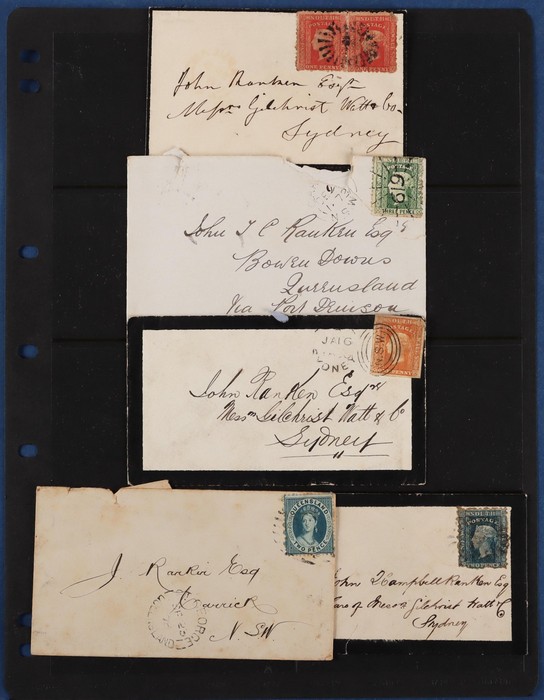 ONE PENNY
John Ranken Esqr
Messrs Gilchrist Watt & Co
Sydney
POSTAGE
619
THREE PENCE
John T C Ranken Esq
Bowen Downs
Queensland
Via Port Denison
POSTAGE
N.S.W
JA16
LONE
John Ranken Esqre
Messrs Gilchrist Watt & Co
Sydney
QUEENSLAND
TWO PENCE
J. Rankin Esq
N. SW
POSTAGE
TWO PENCE
John Campbell Ranken Esq
Care of Messrs Gilchrist Watt & Co
Sydney